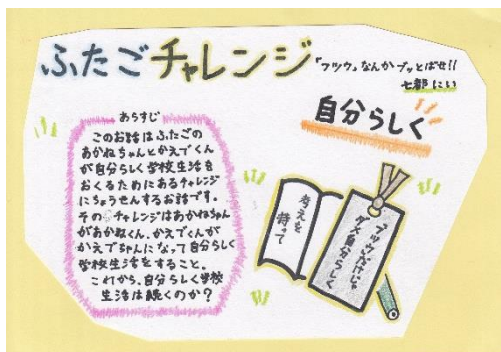 ふたごチャレンジ
「フツウ」なんかブッとばせ!!
七都にい
自分らしく
あらすじ
このお話はふたごの
あかねちゃんとかえでくん
が自分らしく学校生活を
おくるためにあるチャレンジ
にちょうせんするお話です。
そのチャレンジはあかねちゃん
があかねくん、かえでくんが
かえでちゃんになって自分らしく
学校生活をすること。
これから、自分らしく学校
生活は続くのか?
考えを
持って
フツウだけじゃ
ダメ自分らしく